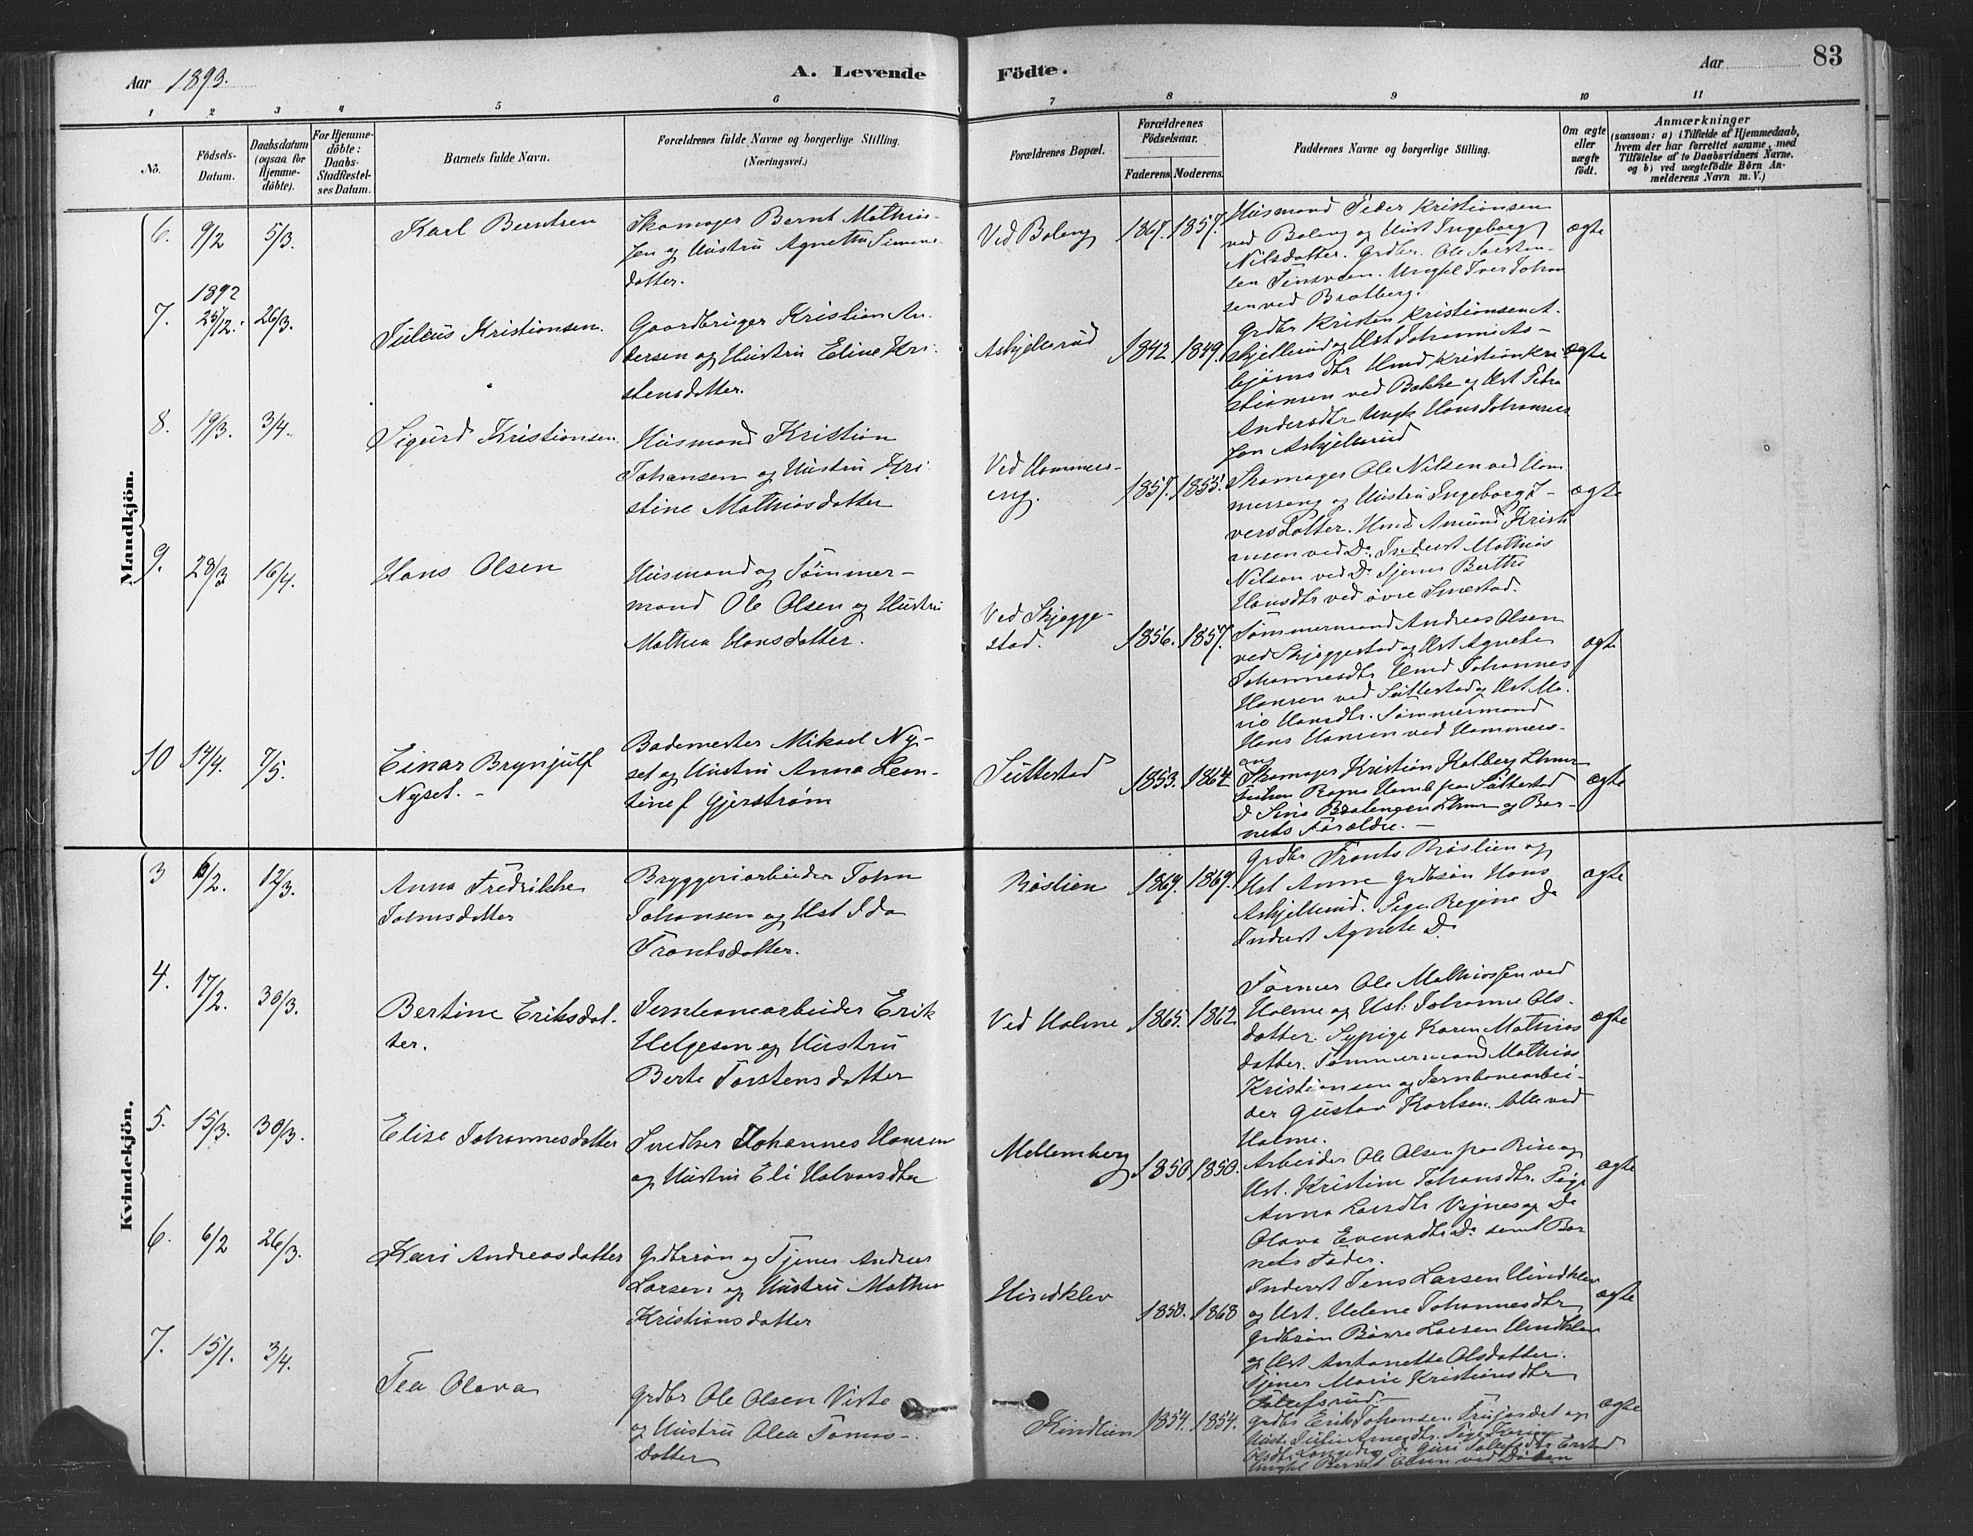 Aar 1893.
A. Levende Födte.
Aar
83
1 2 3 4 5 6 7 8 9 10 11
No.
Födsels-Datum.
Daabsdatum (ogsaa for Hjemme-döbte).
For Hjemme-döbte: Daabs-Stadfæstel-ses Datum.
Barnets fulde Navn.
Forældrenes fulde Navne og borgerlige Stilling.
(Næringsvei.)
Forældrenes Bopæl.
Forældrenes Födselsaar.
Faderens Moderens.
Faddernes Navne og borgerlige Stilling.
Om ægte eller uægte födt.
Anmærkninger
(saasom: a) i Tilfælde af Hjemmedaab,
hvem der har forrettet samme, med
Tilföielse af to Daabsvidners Navne,
og b) ved uægtefödte Börn An-
melderens Navn m. V.)
Mandkjön.
6. 9/2 5/3. Karl Berntsen
Skomager Bernt Mathis-
sen og Hustru Agnethe Simens-
datter.
Ved Boleng 1867. 1857.
Husmand Peder Kristiansen
ved Boleng og Hust Ingeborg
Nilsdatter. Grdbr. Ole Torsten-
sen Ungkl Iver Johan
sen ved Bratberg.
ægte
7. 1892 25/12. 26/3. Julius Kristiansen.
Gaardbruger Kristian An-
dersen og Hustru Eline Kri-
stensdatter.
Askjellerud 1842. 1849.
Grdbr Kristen Kristiansen A-
skjellerud og Hst Johanne As-
bjørnsdtr Hmd Kristian Kri
stiansen ved Bakke og Hst Petra
Andersdtr Ungk Hans Johannes
sen Askjellerud
ægte
8. 19/3. 3/4. Sigurd Kristiansen.
Husmand Kristian
Johansen og Hustru Kri-
stine Mathiasdatter
Ved Hammers-
eng. 1857. 1855.
Skomager Ole Nilsen ved Ham
merseng og Hustru Ingeborg I-
versdatter. Hmd Amund Kristi
ansen ved Do. Inderst Mathias
Nilsen ved Do Tjener Berthe
Hansdtr ved øvre Smestad.
ægte
9. 28/3 16/4. Hans Olsen
Husmand og Tömmer-
mand Ole Olsen og Hustru
Mathea Hansdatter.
Ved Skjegge-
stad. 1856. 1857.
Tömmermand Andreas Olsen
ved Skjeggestad og Hst Agnethe
Johannesdtr Hmd Johannes
Hansen ved Suttestad og Hst Ma-
rie Hansdtr. Tömmermand
Hans Hansen ved Hammers-
eng
ægte
10 14/4. 7/5. Einar Brynjulf
Nyset.
Bademester Mikael Ny-
set og Hustru Anna Leon-
tine f. Gjerstrøm
Suttestad 1853. 1864
Skomager Kristian Kolberg Lhmr
på Suttestad
Lhmr og Bar-
nets Forældre.
ægte
Kvindekjön.
3 6/2. 12/3. Anna Fredrikke
Johnsdatter
Bryggeriarbeider John
Johansen og Hst Ida
Frantsdatter.
Røslien 1864. 1869.
Grdbr Frants Røslien og
Hst Anne Grdbsøn Hans
Askjellerud. Pige Regine Do
Inderst Agnete Do
ægte
4. 17/2. 30/3. Bertine Eriksdat-
ter.
Jernbanearbeider Erik
Helgesen og Hustru
Berte Torstensdatter
Ved Holme 1865. 1862
Former Ole Mathiassen ved
Holme og Hst. Johanne Ols-
datter. Sypige Karen Mathias
datter. Tømmermand Mathias
Kristiansen og Jernbanearbei-
der Gustav Karlsen. Alle ved
Holme.
ægte
5. 15/3. 30/3. Elise Johannesdatter
Snedker Johannes Hansen
og Hustru Eli Halvorsdtter
Mellemberg 1850 1850.
Arbeider Ole Olsen paa Rise og
Hst. Kristine Johansdtr. Pige
Anna Larsdtr Vignes og Do
Olava Evensdtr Do samt Bar
nets Fader.
ægte
6. 6/2 26/3. Kari Andreasdatter
Grdbrsøn og Tjener Andreas
Larsen og Hustru Mathea
Kristiansdatter
Hindklev 1850. 1868
Inderst Jens Larsen Hindklev
og Hst. Helene Johannesdtr
Grdbrsøn Børre Larsen Hindklev
og Hst Antonette Olsdatter.
Tjener Marie Kristiansdtr
Tollefsrud.
ægte
7. 15/1. 3/4. Tea Olava
Grdbr Ole Olsen Viste
og Hustru Olea Tomas-
datter
Kindlien 1854. 1854.
Grdbr Erik Johansen og
Hust. Julie
Ungkl Bernt Olsen ved
ægte